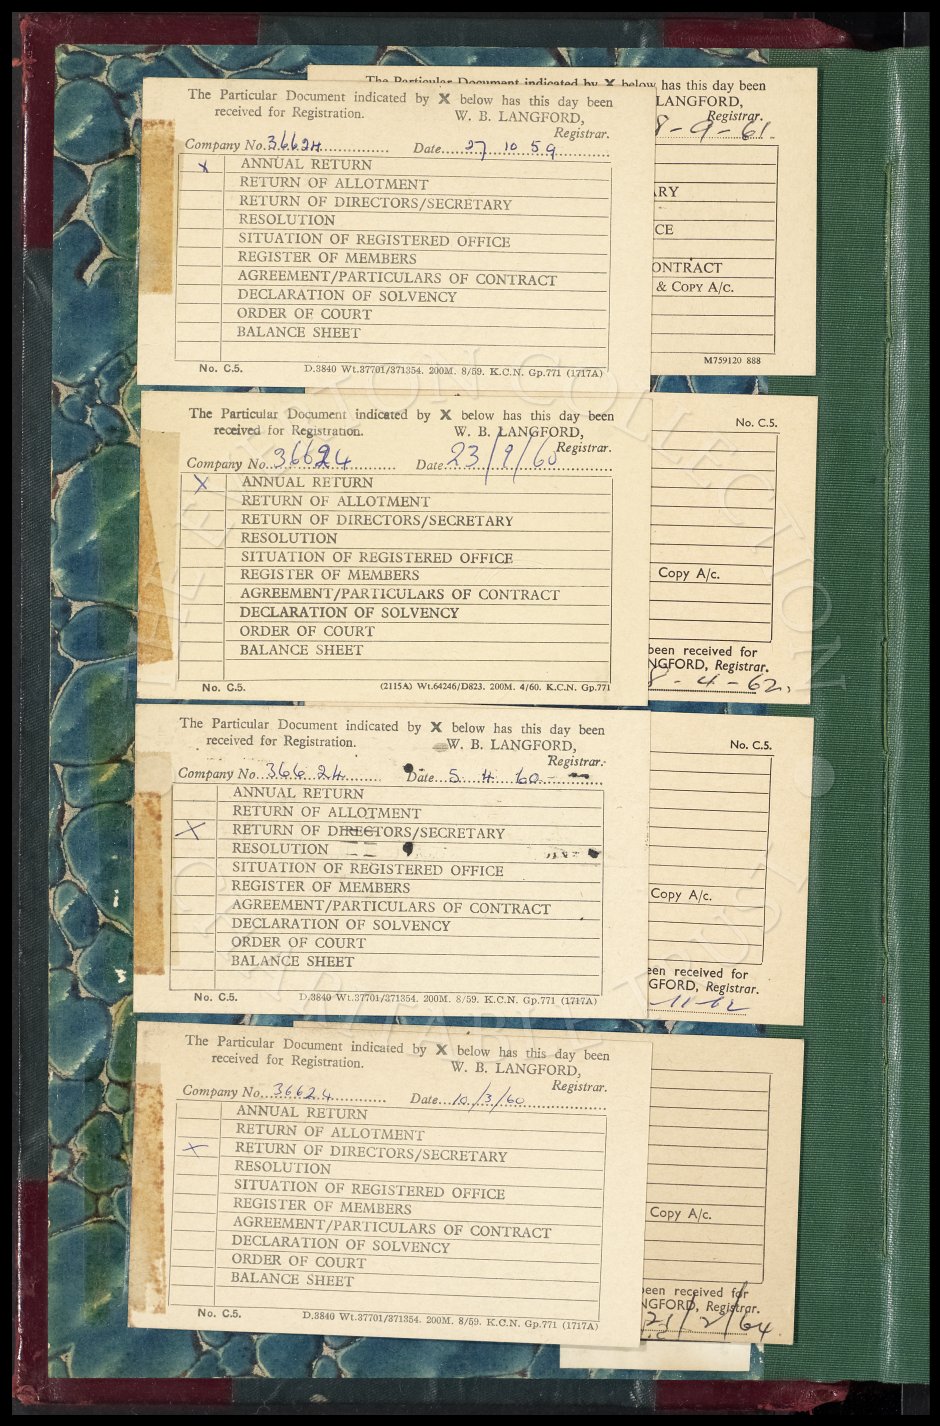 The Particular Document indicated by X below has this day been
LANGFORD,
Registrar.
8-9-61.
ARY
CE
ONTRACT
& COPY A/C.
M759120 888
The Particular Document indicated by X below has this day been
received for Registration. W. B. LANGFORD,
Registrar.
Company No. 36624 Date 27 10 59
X ANNUAL RETURN
RETURN OF ALLOTMENT
RETURN OF DIRECTORS/SECRETARY
RESOLUTION
SITUATION OF REGISTERED OFFICE
REGISTER OF MEMBERS
AGREEMENT/PARTICULARS OF CONTRACT
DECLARATION OF SOLVENCY
ORDER OF COURT
BALANCE SHEET
No. C.5. D.3840 Wt.37701/371354. 200M. 8/59. K.C.N. Gp.771 (1717A)
The Particular Document indicated by X below has this day been
received for Registration. W. B. LANGFORD,
Registrar.
Company No. 36624 Date 23/9/60
X ANNUAL RETURN
RETURN OF ALLOTMENT
RETURN OF DIRECTORS/SECRETARY
RESOLUTION
SITUATION OF REGISTERED OFFICE
REGISTER OF MEMBERS
AGREEMENT/PARTICULARS OF CONTRACT
DECLARATION OF SOLVENCY
ORDER OF COURT
BALANCE SHEET
No. C.5. (2115A) Wt.64246/D823. 200M. 4/60. K.C.N. Gp.771
No. C.5.
Copy A/c.
been received for
NGFORD, Registrar.
8-4-62.
The Particular Document indicated by X below has this day been
received for Registration. W. B. LANGFORD,
Registrar.
Company No. 36624 Date 5 4 60
ANNUAL RETURN
RETURN OF ALLOTMENT
X RETURN OF DIRECTORS/SECRETARY
RESOLUTION
SITUATION OF REGISTERED OFFICE
REGISTER OF MEMBERS
AGREEMENT/PARTICULARS OF CONTRACT
DECLARATION OF SOLVENCY
ORDER OF COURT
BALANCE SHEET
No. C.5. D.3840 Wt.37701/371354. 200M. 8/59. K.C.N. Gp.771 (1717A)
No. C.5.
Copy A/c.
een received for
GFORD, Registrar.
-11-62
The Particular Document indicated by X below has this day been
received for Registration. W. B. LANGFORD,
Registrar.
Company No. 36624 Date 10/3/60
ANNUAL RETURN
RETURN OF ALLOTMENT
X RETURN OF DIRECTORS/SECRETARY
RESOLUTION
SITUATION OF REGISTERED OFFICE
REGISTER OF MEMBERS
AGREEMENT/PARTICULARS OF CONTRACT
DECLARATION OF SOLVENCY
ORDER OF COURT
BALANCE SHEET
No. C.5. D.3840 Wt.37701/371354. 200M. 8/59. K.C.N. Gp.771 (1717A)
Copy A/c.
een received for
NGFORD, Registrar.
21/2/64
COLLECTION
CHARITABLE TRUST